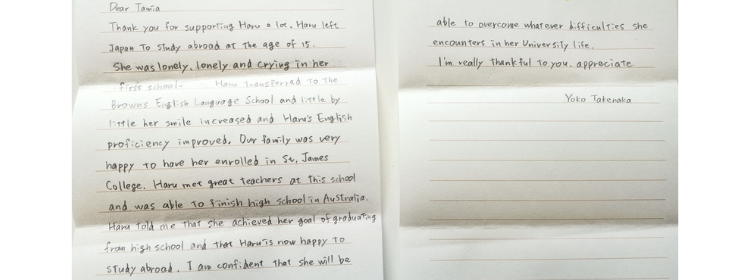 Dear Tania
Thank you for supporting Haru a lot. Haru left
Japan To Study abroad at The age of 15.
She was lonely, lonely and crying in her
first school. Haru transferred to the
Browns English Language School and little by
little her smile increased and Haru's English
proficiency improved. Our family was very
happy to have her enrolled in St. James
College. Haru met great teachers at this school
and was able to finish high school in Australia.
Haru told me that she achieved her goal of graduating
from high school and that Haru is now happy to
study abroad. I am confident that she will be
able to overcome whatever difficulties she
encounters in her University life.
I'm really thankful to you. appreciate
Yoko Takenaka